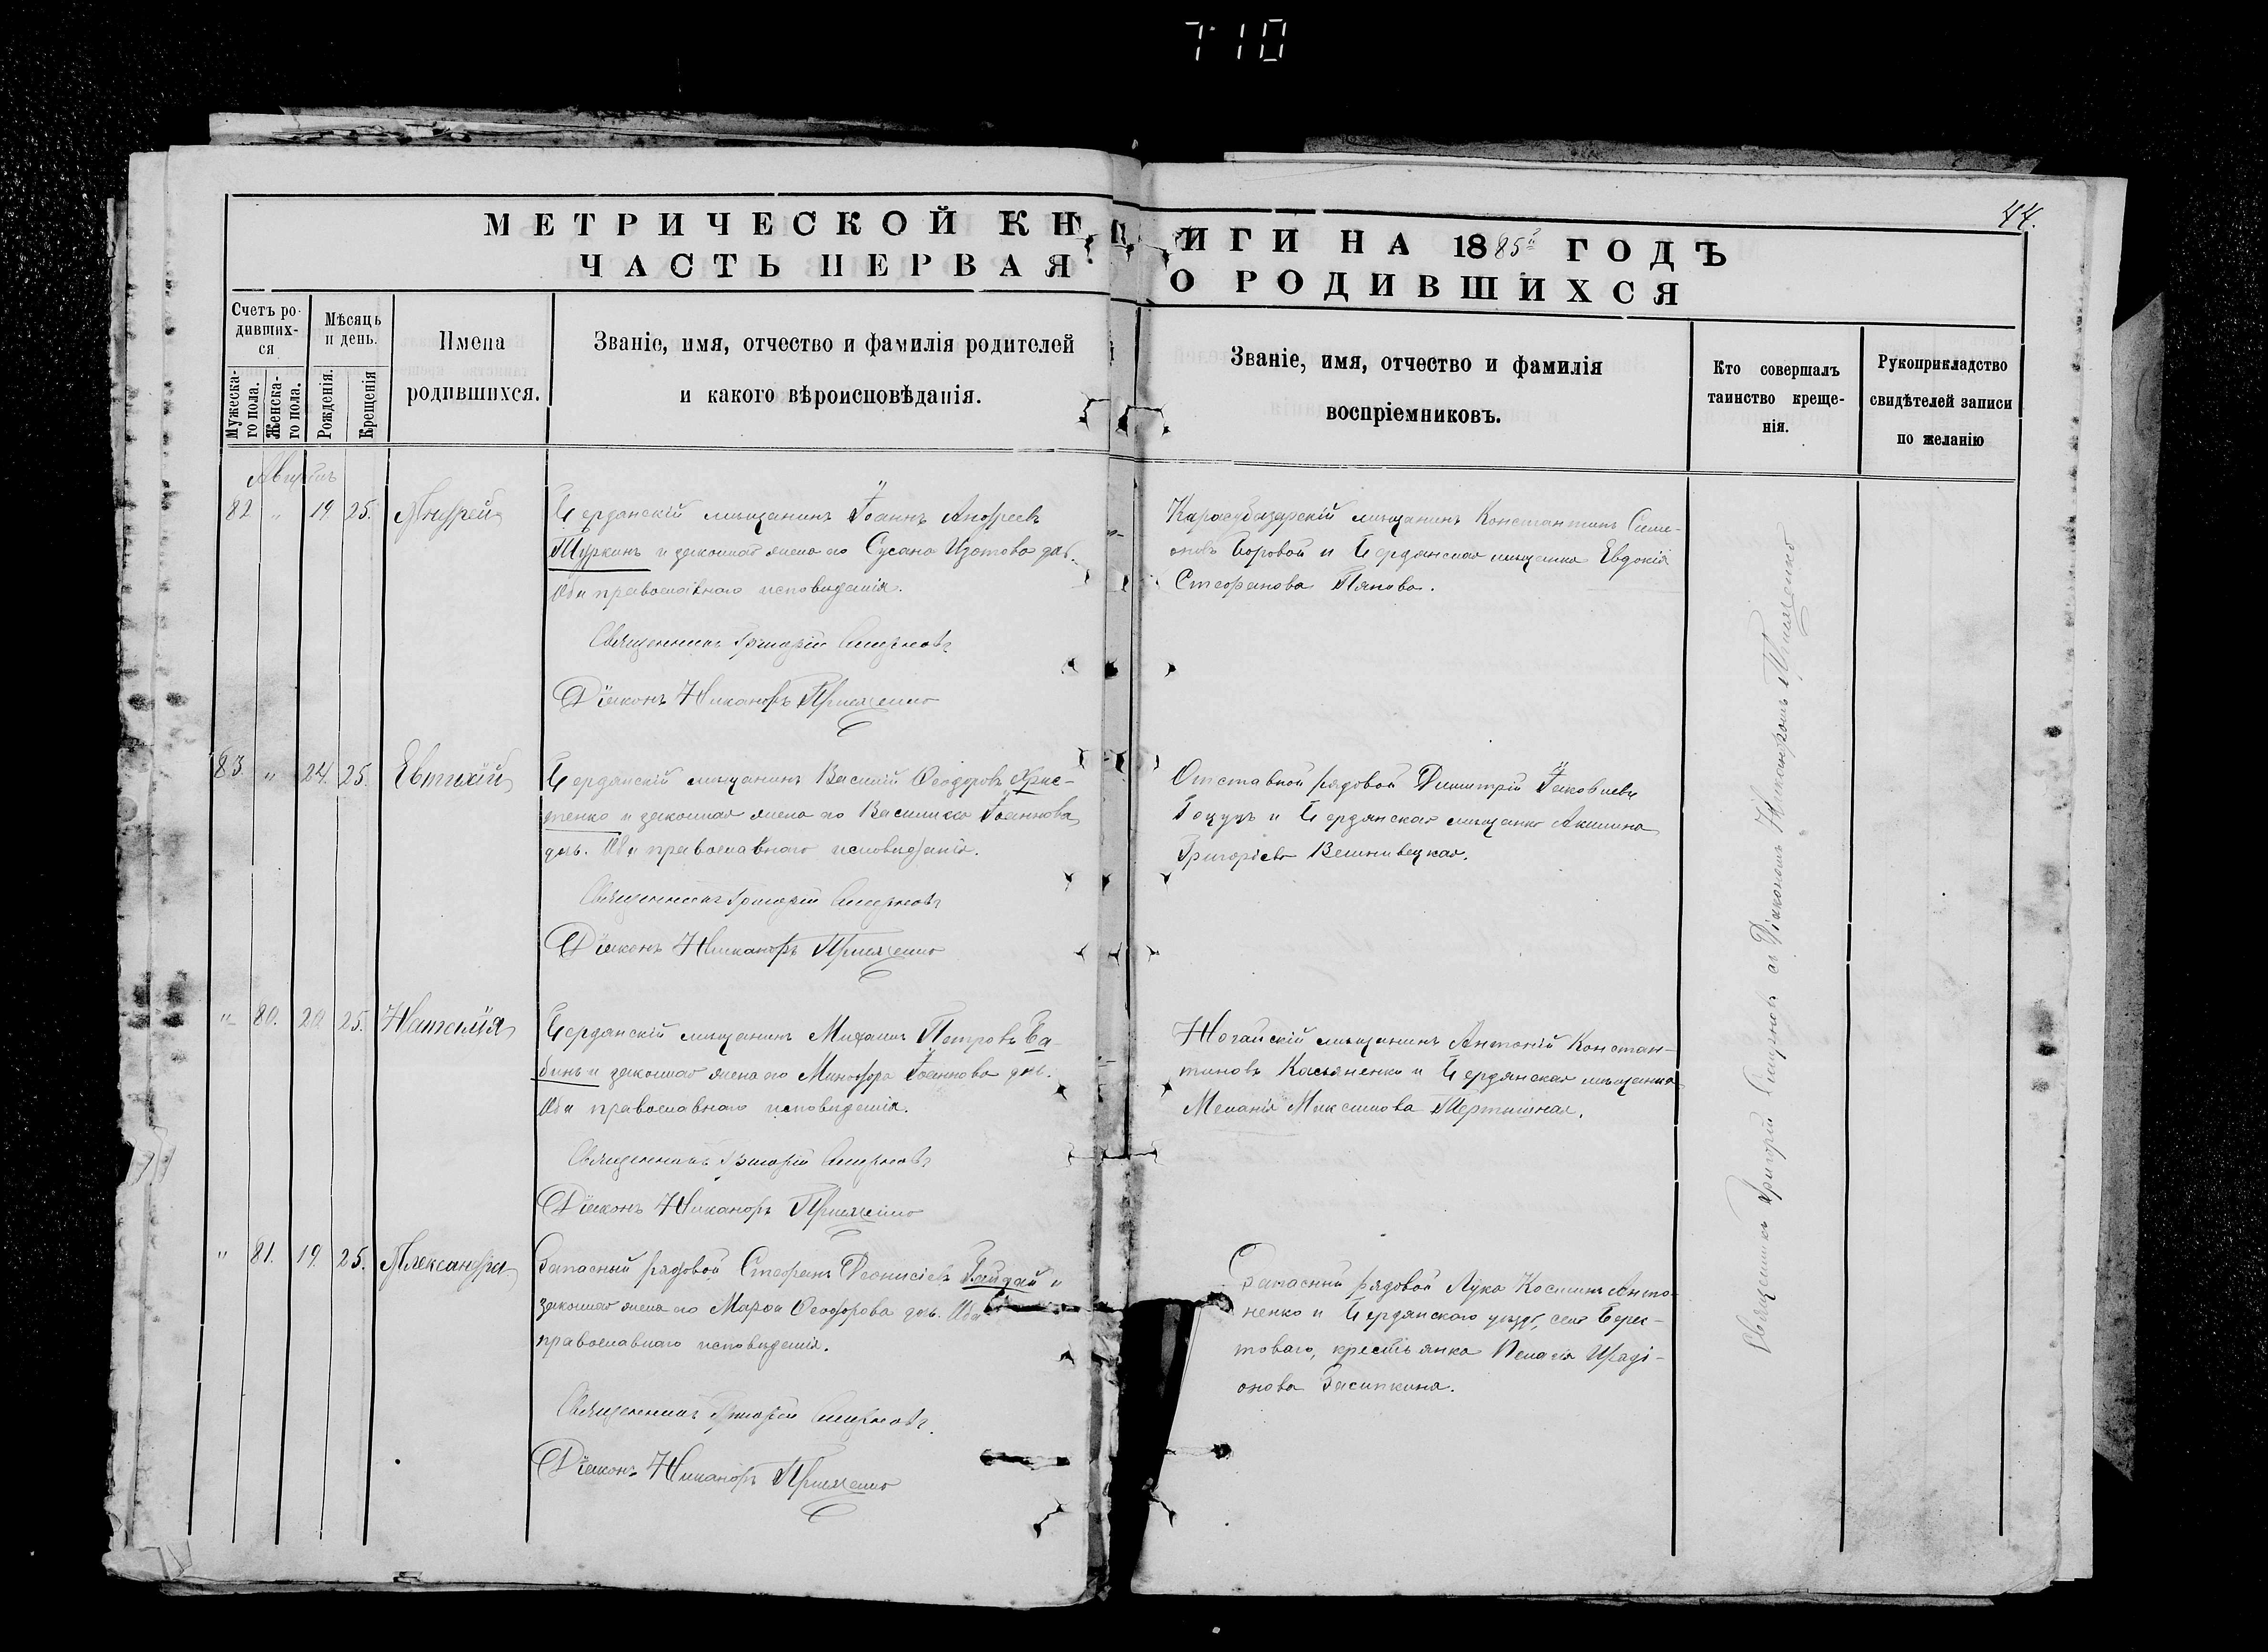 710
44.
МЕТРИЧЕСКОЙ КНИГИ НА 1885й ГОДЪ
ЧАСТЬ ПЕРВАЯ О РОДИВШИХСЯ
Счетъ ро-
дивших-
ся
Мужеска-
го пола.
Женска-
го пола.
Мѣсяцъ
и день.
Рожденія.
Крещенія
Имена
родившихся.
Званіе, имя, отчество и фамилія родителей
и какого вѣроисповѣданія.
Званіе, имя, отчество и фамилія
воспріемниковъ.
Кто совершалъ
таинство креще-
нія.
Рукоприкладство
свидѣтелей записи
по желанію
Августъ
82 " 19 25. Андрей
Бердянскій мѣщанинъ Іоаннъ Андреевъ
Туркинъ и законная жена его Сусана Изотова доч.
Оба православнаго исповѣданія.
Священникъ Григорій Смирновъ
Діаконъ Никаноръ
Карасубазарскій мѣщанинъ Константинъ Симе-
оновъ Боровой и Бердянская мѣщанка Евдокія
Стефанова Пянова.
83 " 24. 25. Евтихій
Бердянскій мѣщанинъ Василій Ѳеодоровъ Хрис-
тенко и законная жена его Василиса Іоаннова
доч. Оба православнаго исповѣданія.
Священникъ Григорій Смирновъ
Діаконъ Никаноръ
Отставной рядовой Димитрій Іаковлевъ
и Бердянская мѣщанка Акилина
Григоріева Вешнивецкая.
" 80. 20 25. Наталія
Бердянскій мѣщанинъ Михаилъ Петровъ Ба-
бинъ и законная жена его Минодора Іоаннова доч.
Оба православнаго исповѣданія.
Священникъ Григорій Смирновъ
Діаконъ Никаноръ
Ногайскій мѣщанинъ Антоній Констан-
тиновъ Касьяненко и Бердянская мѣщанка
Меланія Максимова Тертишная.
" 81. 19 25. Александра
Запасный рядовой Стефанъ Діонисіевъ Гайдай и
законная жена его Марѳа Ѳеодорова доч. Оба
православнаго исповѣданія.
Священникъ Григорій Смирновъ
Діаконъ Никаноръ
Запасный рядовой Лука Косминъ Анто-
ненко и Бердянскаго уѣзда, села Берес-
товаго, крестьянка Пелагія Иради-
онова Засипкина.
Священникъ Григорій Смирновъ съ Діакономъ Никаноромъ